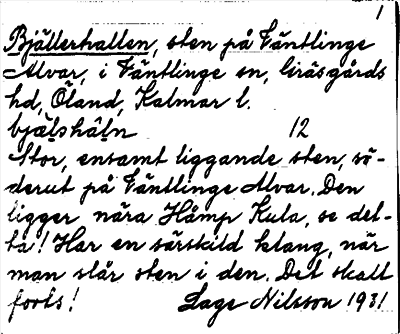 1
Bjällerhallen, sten på Väntlinge
Alvar, i Väntlinge sn, Gräsgårds
hd, Öland, Kalmar l.
bjäḷshâḷn 12
Stor, ensamt liggande sten, sö-
derut på Väntlinge Alvar. Den
ligger nära Hämp Kula, se det-
ta! Har en särskild klang, när
man slår sten i den. Det skall
forts! Lage Nilsson 1931